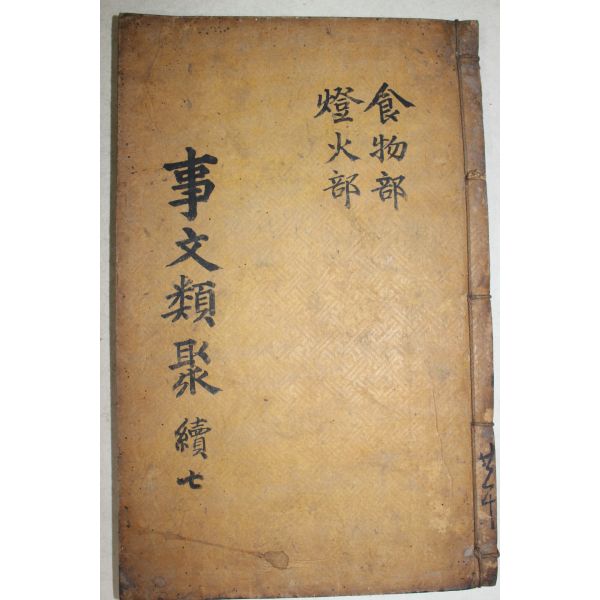 食物部
燈火部
事文類聚 續七